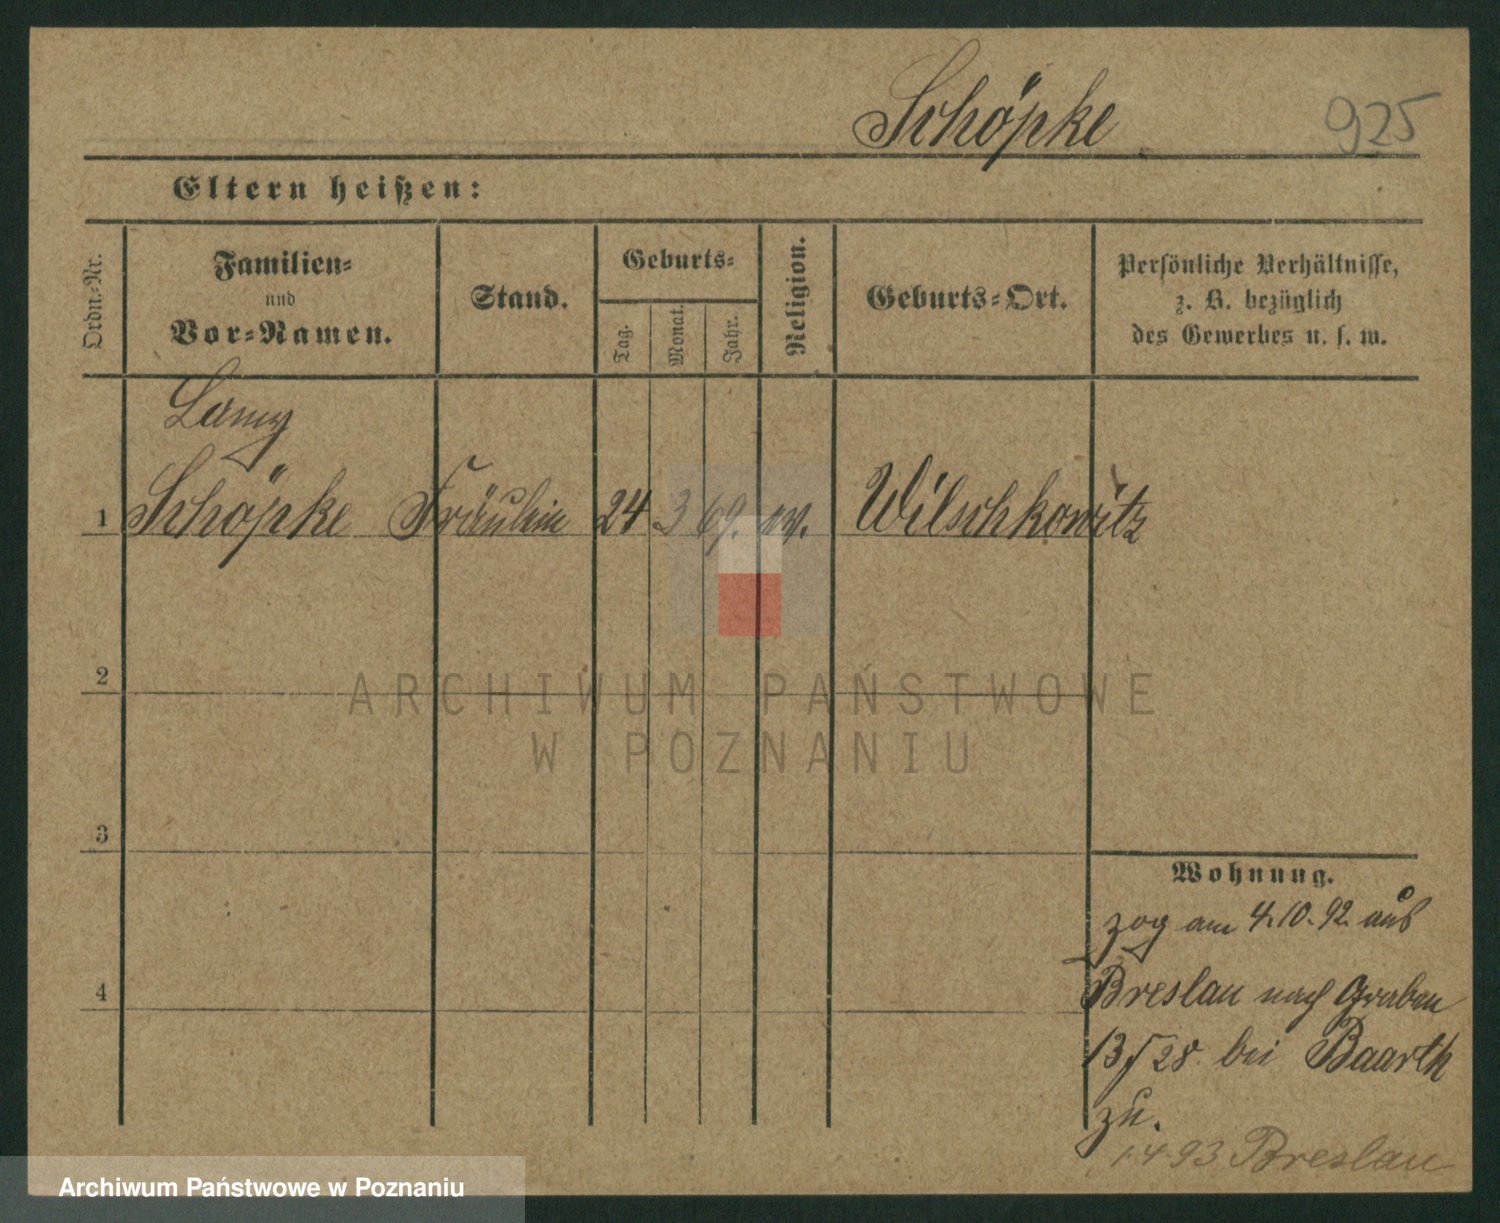 Schöpke 925
Eltern heißen:
Ordn.-Nr.
Familien-
und
Vor-Namen.
Stand.
Geburts-
Tag.
Monat.
Jahr.
Religion.
Geburts-Ort.
Persönliche Verhältnisse,
z. B. bezüglich
des Gewerbes u. s. w.
1 Schöpke Fräulein 24 3 69. ev. Wilschkowitz
2
ARCHIWUM PAŃSTWOWE
W POZNANIU
3
Wohnung.
zog am 4.10.92 aus
4
Breslau nach Graben
13/28 bei Baarth
zu.
1.4.93 Breslau
Archiwum Państwowe w Poznaniu